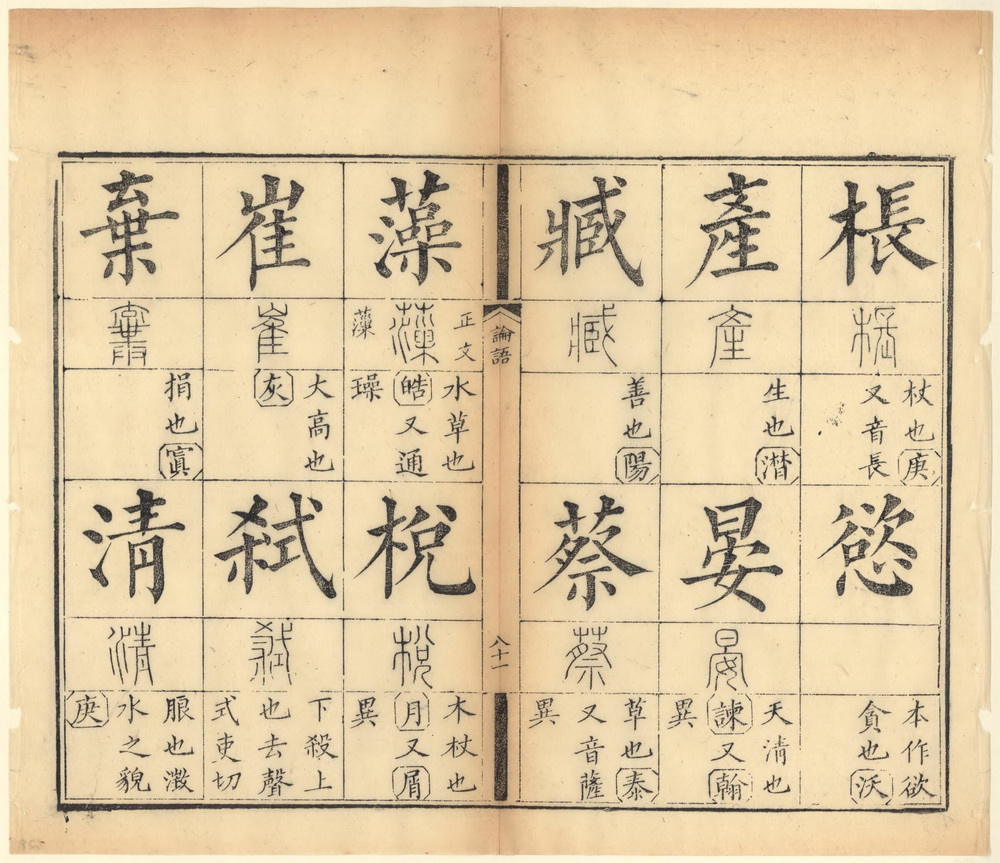 棖
棖
杖也庚
又音長
慾
本作欲
貪也沃
產
產
生也潸
晏
晏
天清也
諫又翰
異
臧
臧
善也陽
蔡
蔡
草也泰
又音薩
異
論語
八十一
藻
正文
薻
藻
水草也
皓又通
璪
梲
梲
木杖也
月又屑
異
崔
崔
大高也
灰
弒
弒
下殺上
也去聲
式吏切
棄
棄
捐也寘
清
清
朖也澂
水之貌
庚